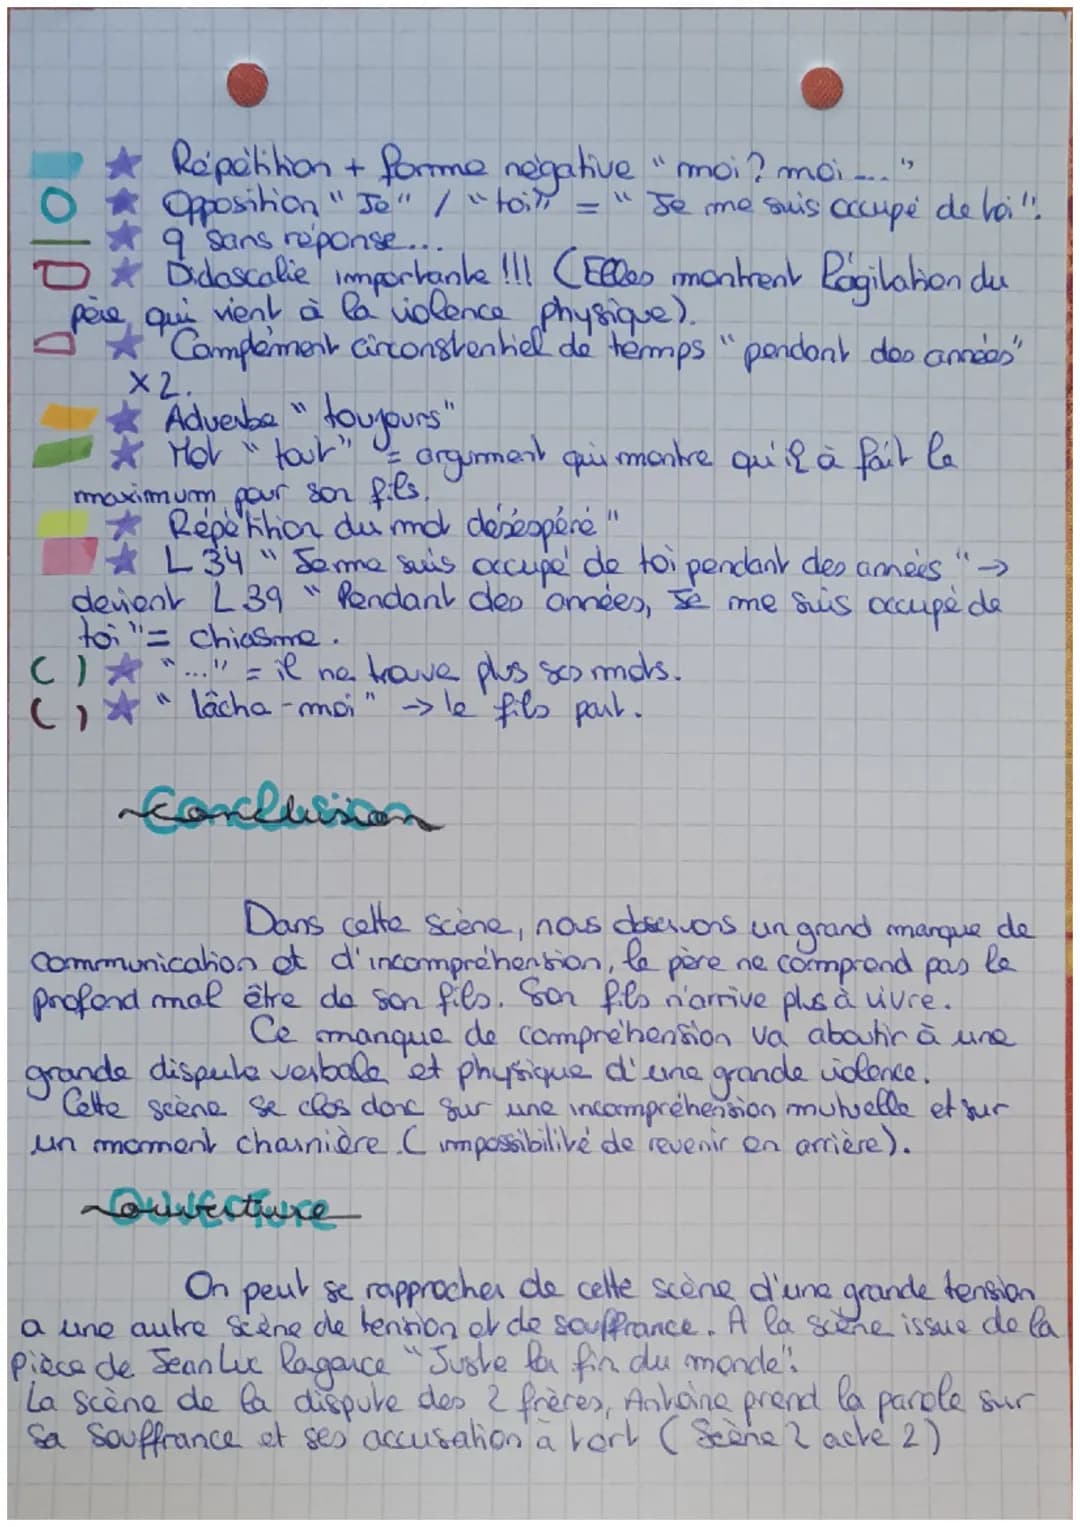 Répétition + forme négative " moi? moi.... "
Opposition " Je " / " toi " = " Je me suis occupé de toi ".
q sans réponse...
Didascalie importante !!! (Elles montrent l'agitation du
père qui vient à la violence physique).
Complément circonstentiel de temps " pendant des années"
x2.
Adverbe " toujours"
Mot " tout" = argument qui montre qu'il à fait le
maximum pour son fils.
Répétition du mot désespéré "
L 34 " Je me suis occupé de toi pendant des années " →
devient L39 " Pendant des années, Je me suis occupé de
toi "= chiasme.
( ) "..." = il ne trouve plus ses mots.
( ) " lâche-moi" → le fils part.
Conclusion
Dans cette scène, nous observons un grand manque de
communication et d'incompréhension, le père ne comprend pas le
profond mal être de son fils. Son fils n'arrive plus à vivre.
Ce manque de compréhension va aboutir à une
grande dispute verbale et physique d'une grande violence.
Cette scène se clos donc sur une incompréhension mutuelle et sur
un moment charnière. ( impossibilité de revenir en arrière).
Ouverture
On peut se rapprocher de cette scène d'une grande tension
a une autre scène de tension et de souffrance. A la scène issue de la
pièce de Jean Luc Lagarce "Juste la fin du monde".
La scène de la dispute des 2 frères, Antoine prend la parole sur
sa souffrance et ses accusation à tort ( Scène 2 acte 2)